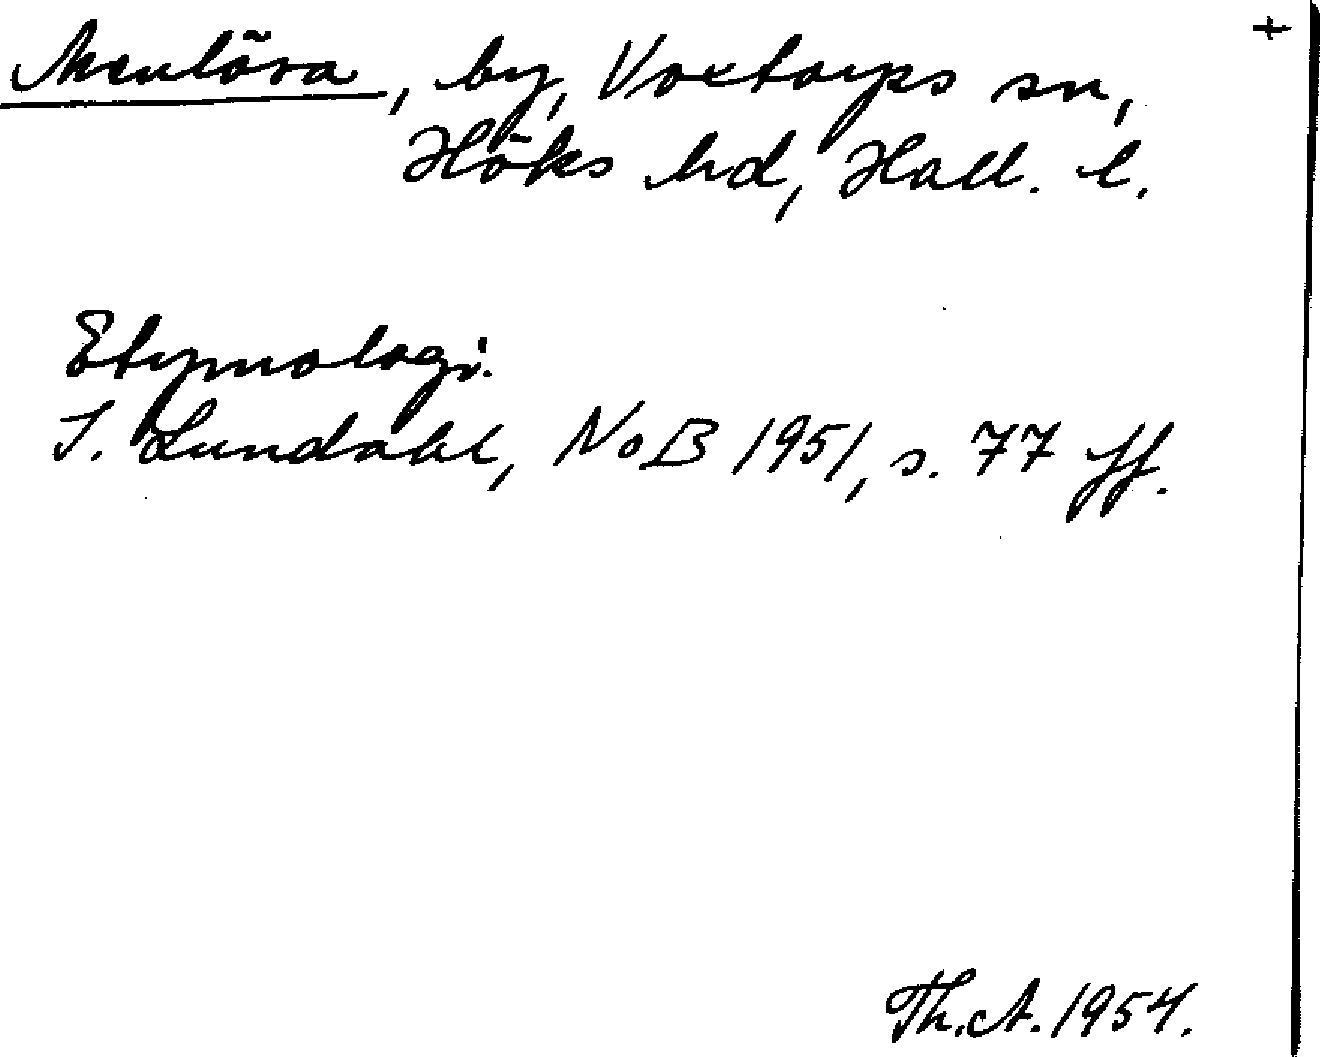 +
Menlösa, by, Voxtorps sn,
Höks hd, Hall. l.
Etymologi.
I. Lundahl, NoB 1951, s. 77 ff.
Th.A. 1954.